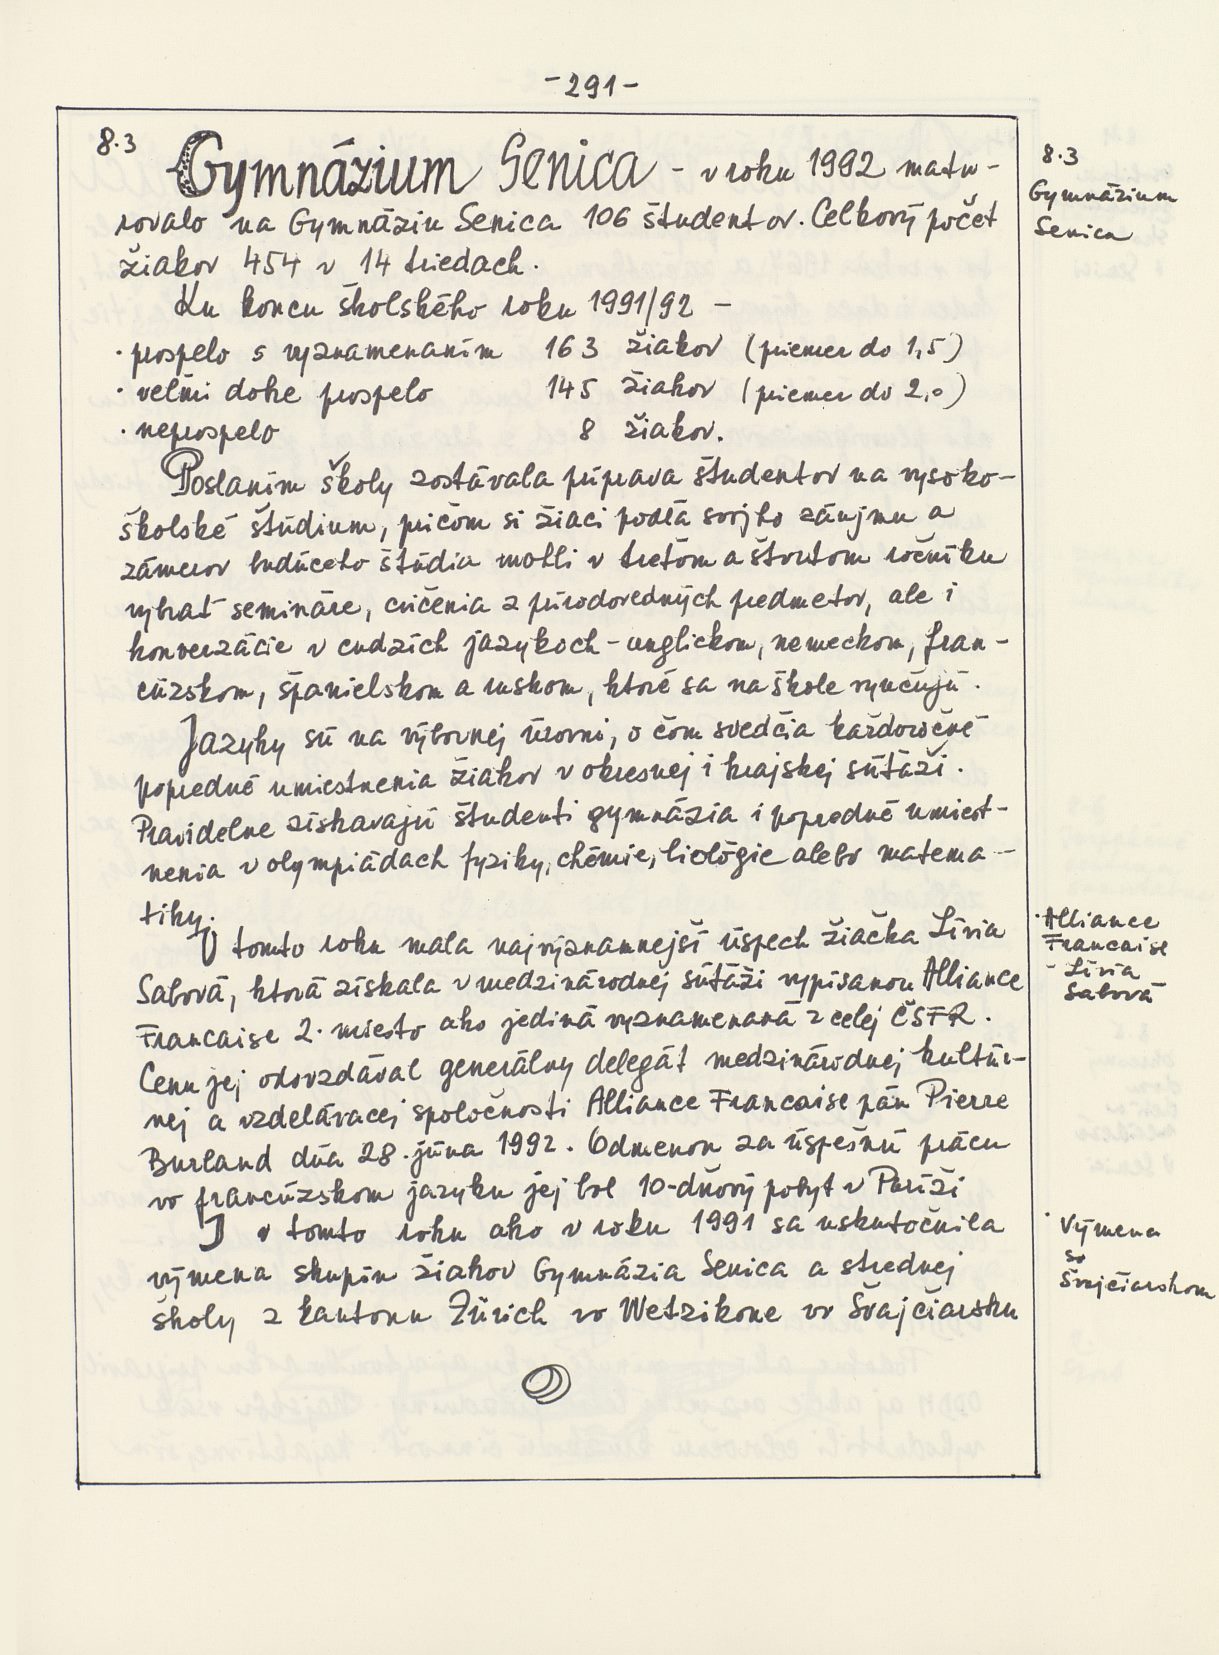 -291-
8.3
Gymnázium Senica - v roku 1992 matu-
rovalo na Gymnáziu Senica 106 študentov. Celkový počet
žiakov 454 v 14 triedach.
Ku koncu školského roku 1991/92 -
· prospelo s vyznamenaním 163 žiakov (priemer do 1,5)
· veľmi dobre prospelo 145 žiakov (priemer do 2,0)
· neprospelo 8 žiakov.
Poslaním školy zostávala príprava študentov na vysoko-
školské štúdium, pričom si žiaci podľa svojho záujmu a
zámerov budúceho štúdia mohli v treťom a štvrtom ročníku
vybrať semináre, cvičenia z prírodovedných predmetov, ale i
konverzácie v cudzích jazykoch - anglickom, nemeckom, fran-
cúzskom, španielskom a ruskom, ktoré sa na škole vyučujú.
Jazyky sú na výbornej úrovni, o čom svedčia každoročné
popredné umiestnenia žiakov v okresnej i krajskej súťaži.
Pravidelne získavajú študenti gymnázia i popredné umiest-
nenia v olympiádach fyziky, chémie, biológie alebo matema-
tiky.
V tomto roku mala najvýznamnejší úspech žiačka Lívia
Sabová, ktorá získala v medzinárodnej súťaži vypísanou Alliance
Francaise 2. miesto ako jediná vyznamenaná z celej ČSFR.
Cenu jej odovzdával generálny delegát medzinárodnej kultúr-
nej a vzdelávacej spoločnosti Alliance Francaise pán Pierre
Burland dňa 28. júna 1992. Odmenou za úspešnú prácu
vo francúzskom jazyku jej bol 10-dňový pobyt v Paríži
I v tomto roku ako v roku 1991 sa uskutočnila
výmena skupín žiakov Gymnázia Senica a strednej
školy z kantonu Zürich vo Wetzikone vo Švajčiarsku
8.3
Gymnázium
Senica
· Alliance
Francaise
- Lívia
Sabová
· Výmena
so
Švajčiarskom